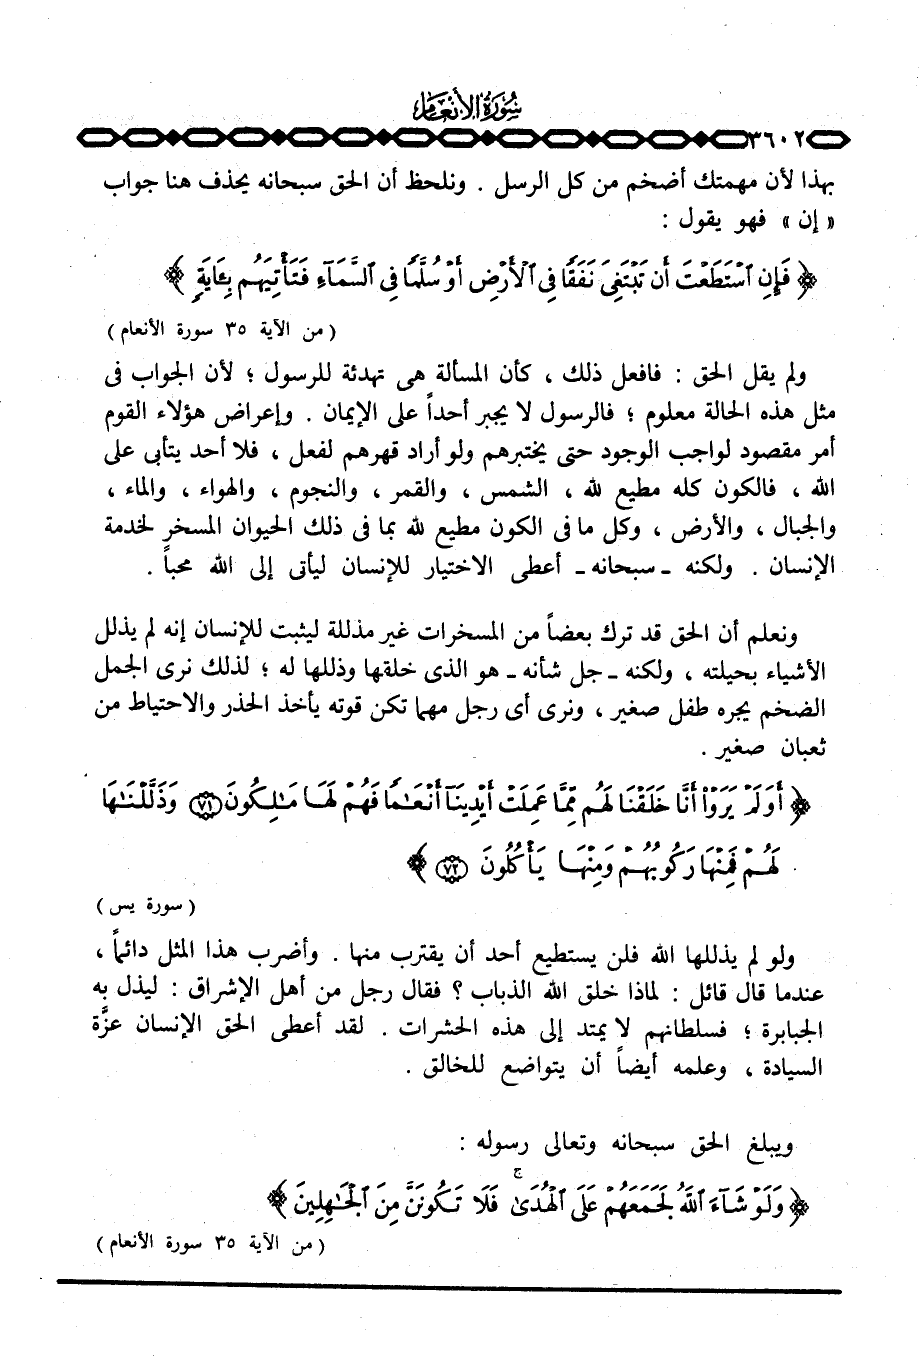 سُورَةُ الأَنْعَامِ
٣٦٠٢
بهذا لأن مهمتك أضخم من كل الرسل . ونلحظ أن الحق سبحانه يحذف هنا جواب
« إن » فهو يقول :
﴿ فَإِنِ ٱسْتَطَعْتَ أَن تَبْتَغِىَ نَفَقًا فِى ٱلْأَرْضِ أَوْ سُلَّمًا فِى ٱلسَّمَآءِ فَتَأْتِيَهُم بِـَٔايَةٍ ﴾
( من الآية ٣٥ سورة الأنعام )
ولم يقل الحق : فافعل ذلك ، كأن المسألة هى تهدئة للرسول ؛ لأن الجواب فى
مثل هذه الحالة معلوم ؛ فالرسول لا يجبر أحداً على الإيمان . وإعراض هؤلاء القوم
أمر مقصود لواجب الوجود حتى يختبرهم ولو أراد قهرهم لفعل ، فلا أحد يتأبى على
الله ، فالكون كله مطيع لله ، الشمس ، والقمر ، والنجوم ، والهواء ، والماء ،
والجبال ، والأرض ، وكل ما فى الكون مطيع لله بما فى ذلك الحيوان المسخر لخدمة
الإنسان . ولكنه ـ سبحانه ـ أعطى الاختيار للإنسان ليأتى إلى الله محباً .
ونعلم أن الحق قد ترك بعضاً من المسخرات غير مذللة ليثبت للإنسان إنه لم يذلل
الأشياء بحيلته ، ولكنه ـ جل شأنه ـ هو الذى خلقها وذللها له ؛ لذلك نرى الجمل
الضخم يجره طفل صغير ، ونرى أى رجل مهما تكن قوته يأخذ الحذر والاحتياط من
ثعبان صغير .
﴿ أَوَلَمْ يَرَوْا۟ أَنَّا خَلَقْنَا لَهُم مِّمَّا عَمِلَتْ أَيْدِينَآ أَنْعَـٰمًا فَهُمْ لَهَا مَـٰلِكُونَ ٧١ وَذَلَّلْنَـٰهَا
لَهُمْ فَمِنْهَا رَكُوبُهُمْ وَمِنْهَا يَأْكُلُونَ ٧٢ ﴾
( سورة يس )
ولو لم يذللها الله فلن يستطيع أحد أن يقترب منها . وأضرب هذا المثل دائماً ،
عندما قال قائل : لماذا خلق الله الذباب ؟ فقال رجل من أهل الإشراق : ليذل به
الجبابرة ؛ فسلطانهم لا يمتد إلى هذه الحشرات . لقد أعطى الحق الإنسان عزَّة
السيادة ، وعلمه أيضاً أن يتواضع للخالق .
ويبلغ الحق سبحانه وتعالى رسوله :
﴿ وَلَوْ شَآءَ ٱللَّهُ لَجَمَعَهُمْ عَلَى ٱلْهُدَىٰ ۚ فَلَا تَكُونَنَّ مِنَ ٱلْجَـٰهِلِينَ ﴾
( من الآية ٣٥ سورة الأنعام )